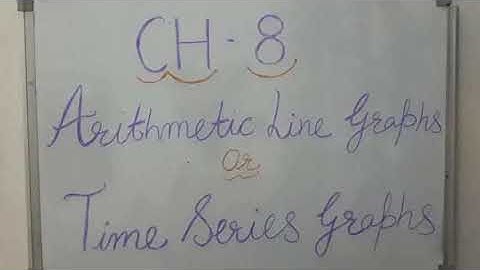 CH - 8
Arithmetic Line Graphs
Or
Time Series Graphs